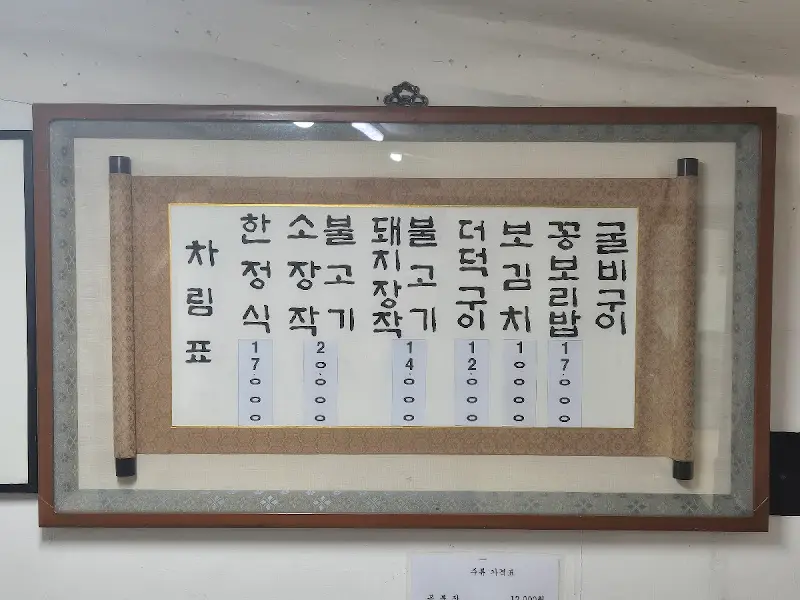 차림표
한정식
17.000
소장작
불고기
20.000
돼지장작
불고기
14.000
더덕구이
12.000
보김치
10.000
꽁보리밥
17.000
굴비구이
주류 가격표